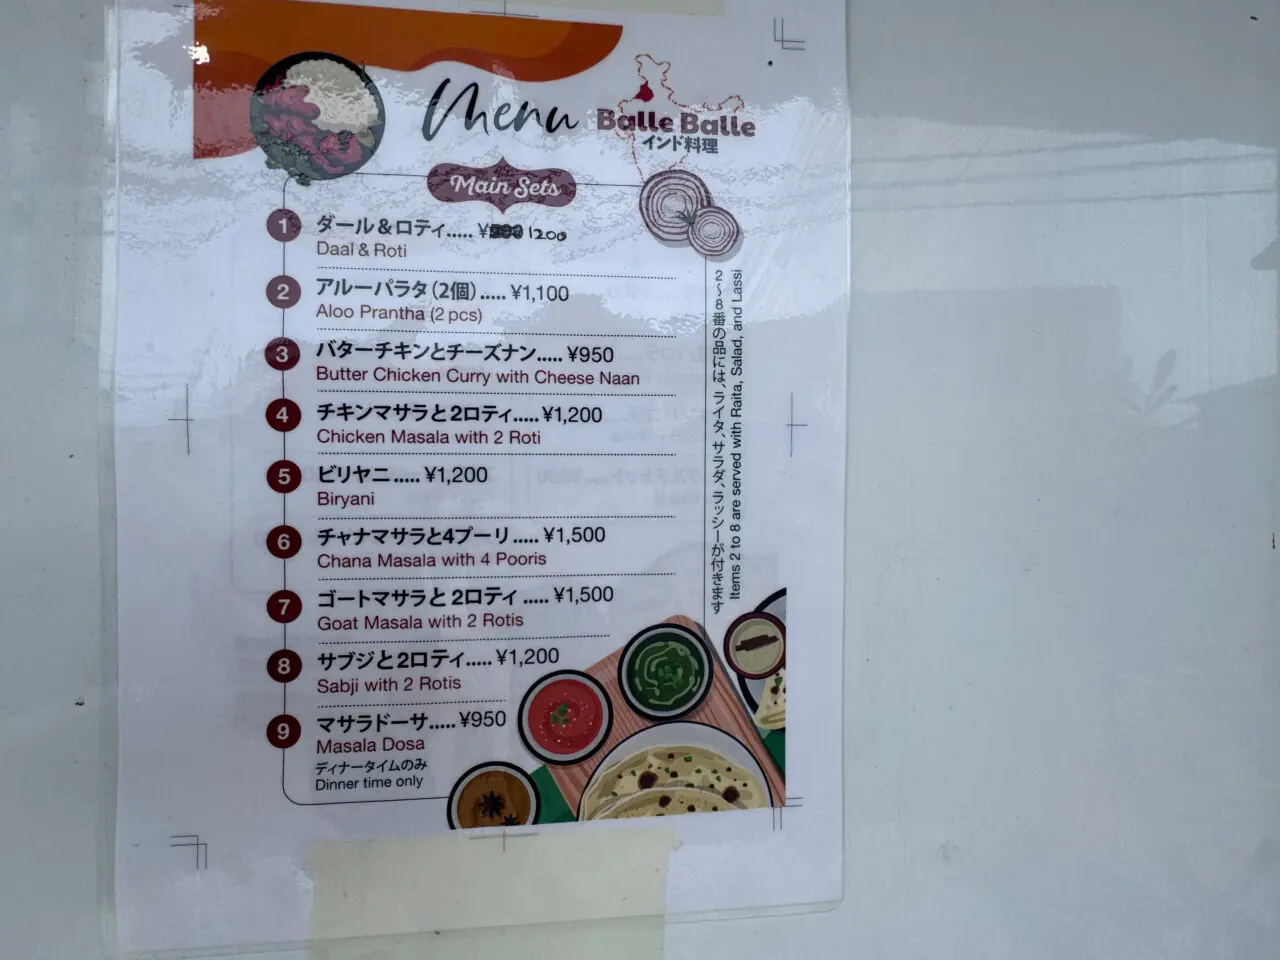 Menu
Balle Balle
インド料理
Main Sets
1 ダール&ロティ..... ¥ 1200
Daal & Roti
2 アルーパラタ(2個)..... ¥1,100
Aloo Prantha (2 pcs)
3 バターチキンとチーズナン..... ¥950
Butter Chicken Curry with Cheese Naan
4 チキンマサラと2ロティ..... ¥1,200
Chicken Masala with 2 Roti
5 ビリヤニ..... ¥1,200
Biryani
6 チャナマサラと4プーリ..... ¥1,500
Chana Masala with 4 Pooris
7 ゴートマサラと2ロティ..... ¥1,500
Goat Masala with 2 Rotis
8 サブジと2ロティ..... ¥1,200
Sabji with 2 Rotis
9 マサラドーサ..... ¥950
Masala Dosa
ディナータイムのみ
Dinner time only
2〜8番の品には、ライタ、サラダ、ラッシーが付きます
Items 2 to 8 are served with Raita, Salad, and Lassi